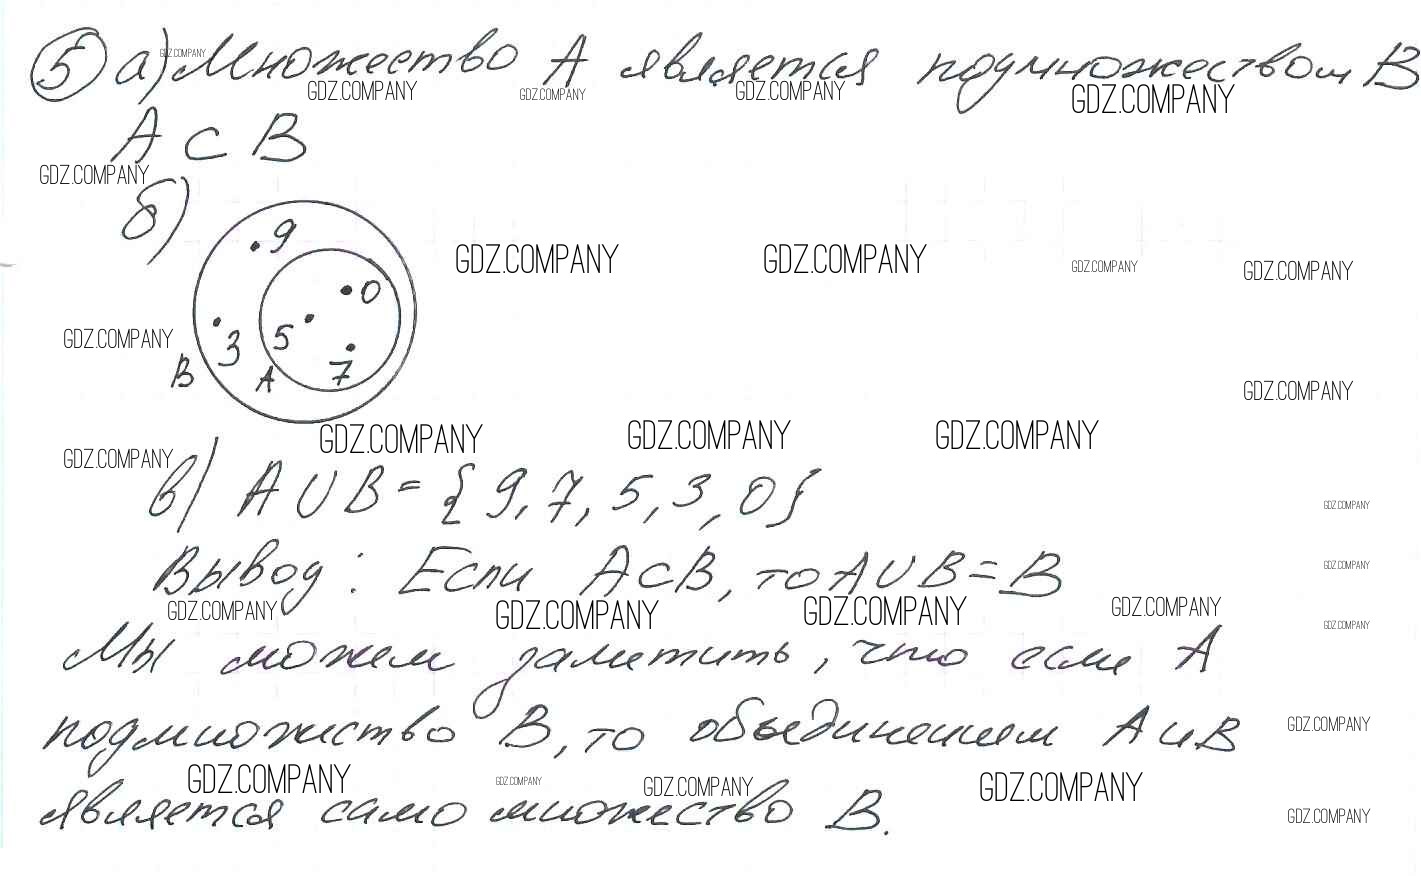 5 а) Множество А является подмножеством В
GDZ.COMPANY
GDZ.COMPANY GDZ.COMPANY GDZ.COMPANY GDZ.COMPANY
А ⊂ В
GDZ.COMPANY
б)
9
0
5
3
7
В А
GDZ.COMPANY GDZ.COMPANY GDZ.COMPANY GDZ.COMPANY
GDZ.COMPANY
GDZ.COMPANY
GDZ.COMPANY GDZ.COMPANY GDZ.COMPANY
GDZ.COMPANY
в) А ∪ В = { 9, 7, 5, 3, 0 }
GDZ.COMPANY
Вывод: Если А⊂В, то А∪В=В
GDZ.COMPANY
GDZ.COMPANY GDZ.COMPANY GDZ.COMPANY GDZ.COMPANY
GDZ.COMPANY
Мы можем заметить, что если А
подмножиство В, то объединением А и В
GDZ.COMPANY
GDZ.COMPANY GDZ.COMPANY GDZ.COMPANY GDZ.COMPANY
является само множество В.
GDZ.COMPANY